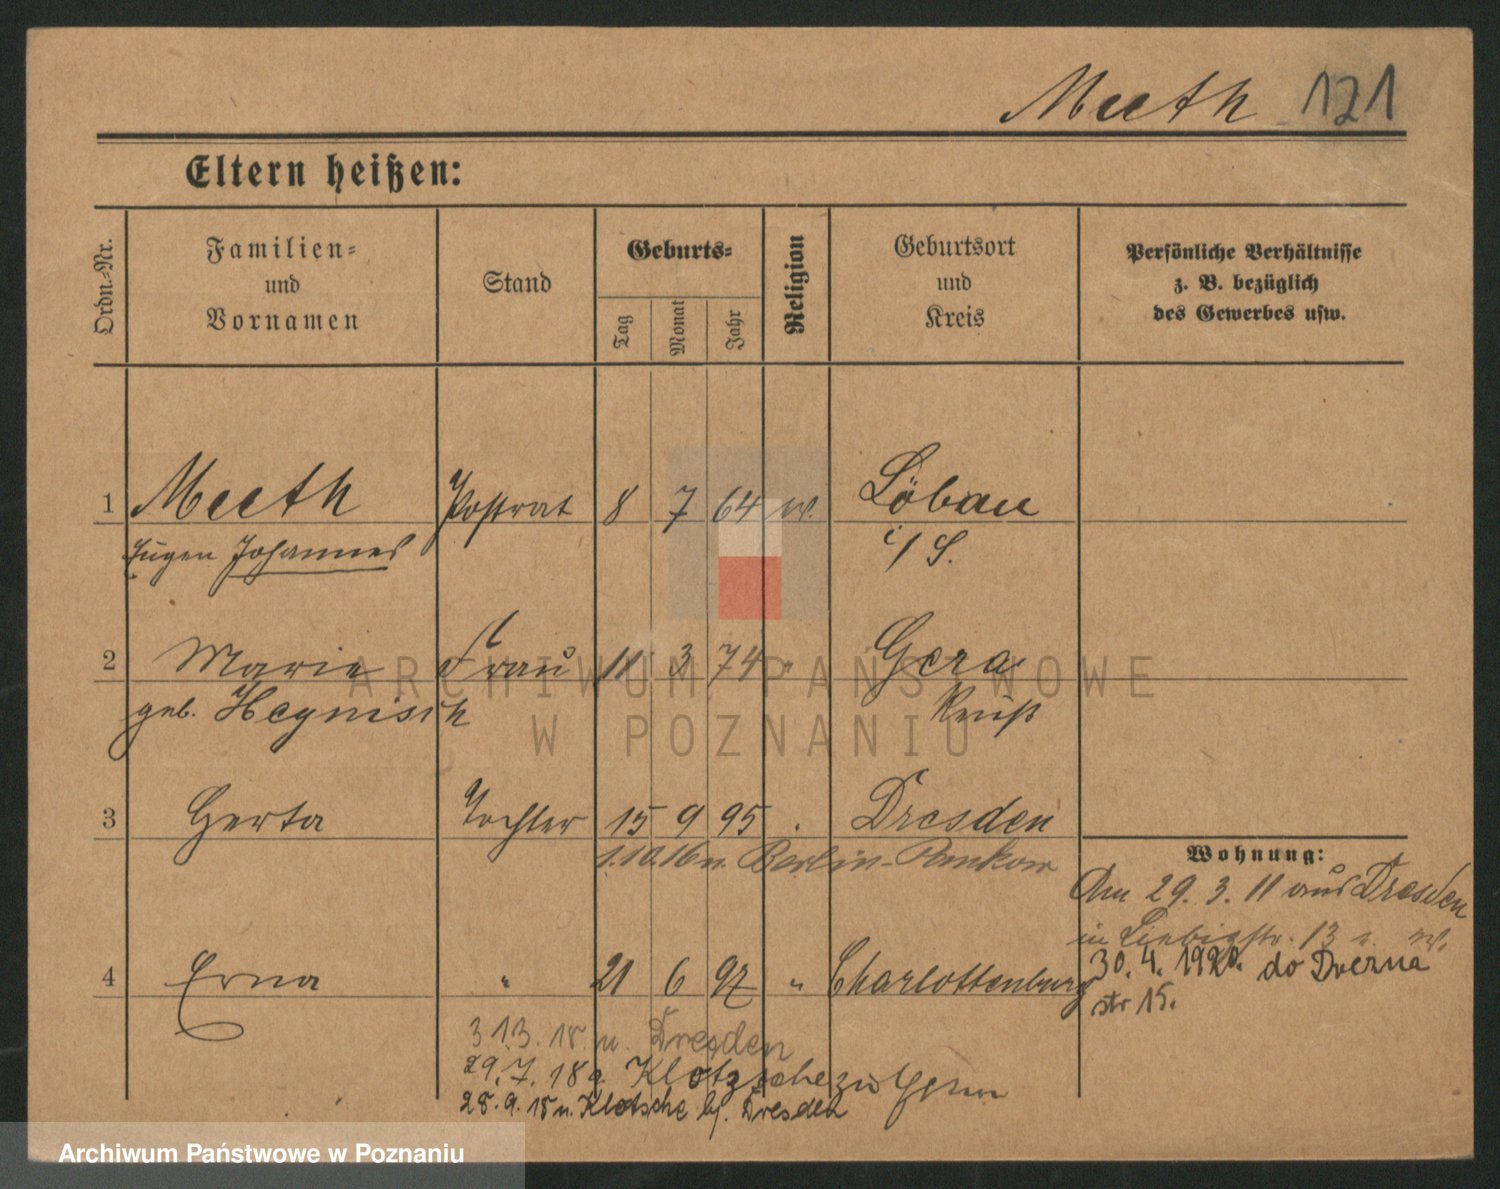 Meeth 121
Eltern heißen:
Ordn.-Nr.
Familien-
und
Vornamen
Stand
Geburts-
Tag
Monat
Jahr
Religion
Geburtsort
und
Kreis
Persönliche Verhältnisse
z. B. bezüglich
des Gewerbes usw.
1 Meeth Postrat 8 7 64 Löbau
Eugen Johannes i/S.
2 Marie Frau 11 3 74 " Gera
geb. Hegnisch Reuß
3 Herta Tochter 15 9 95 Dresden
1.10.16 n. Berlin-Pankow
Wohnung:
Am 29. 3. 11 aus Dresden
in Liebigstr. 13
30. 4. 1920. do
str 15.
4 Erna " 21 6 97 " Charlottenburg
31.3.18. n. Dresden
29.7.18 Klotzsche
28.9.18 n. Klotsche b/. Dresden
ARCHIWUM PAŃSTWOWE
W POZNANIU
Archiwum Państwowe w Poznaniu